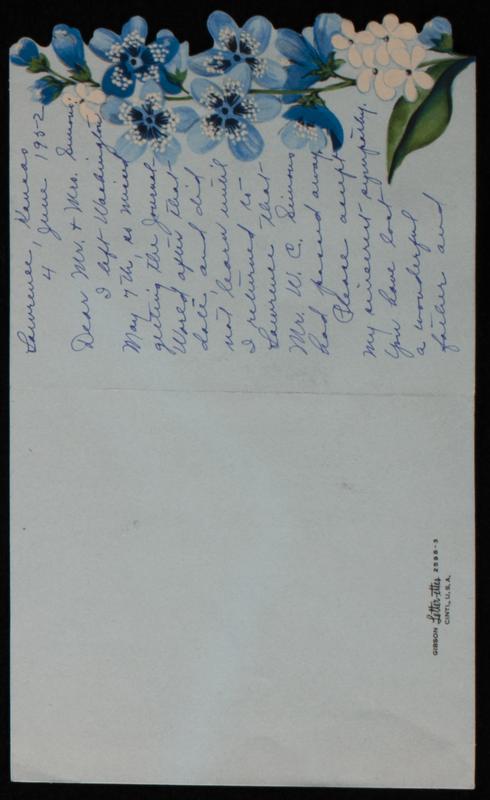 Lawrence, Kansas
4 June 1952
Dear Mr. & Mrs. Simons
I left Washington
May 7th, so missed
getting the Journal
World after that
date and did
not learn until
I returned to
Lawrence that
Mr. W. C. Simons
had passed away.
Please accept
my sincerest sympathy.
You have lost
a wonderful
father and
GIBSON Letter-ettes 2598-3
CINTI., U.S.A.